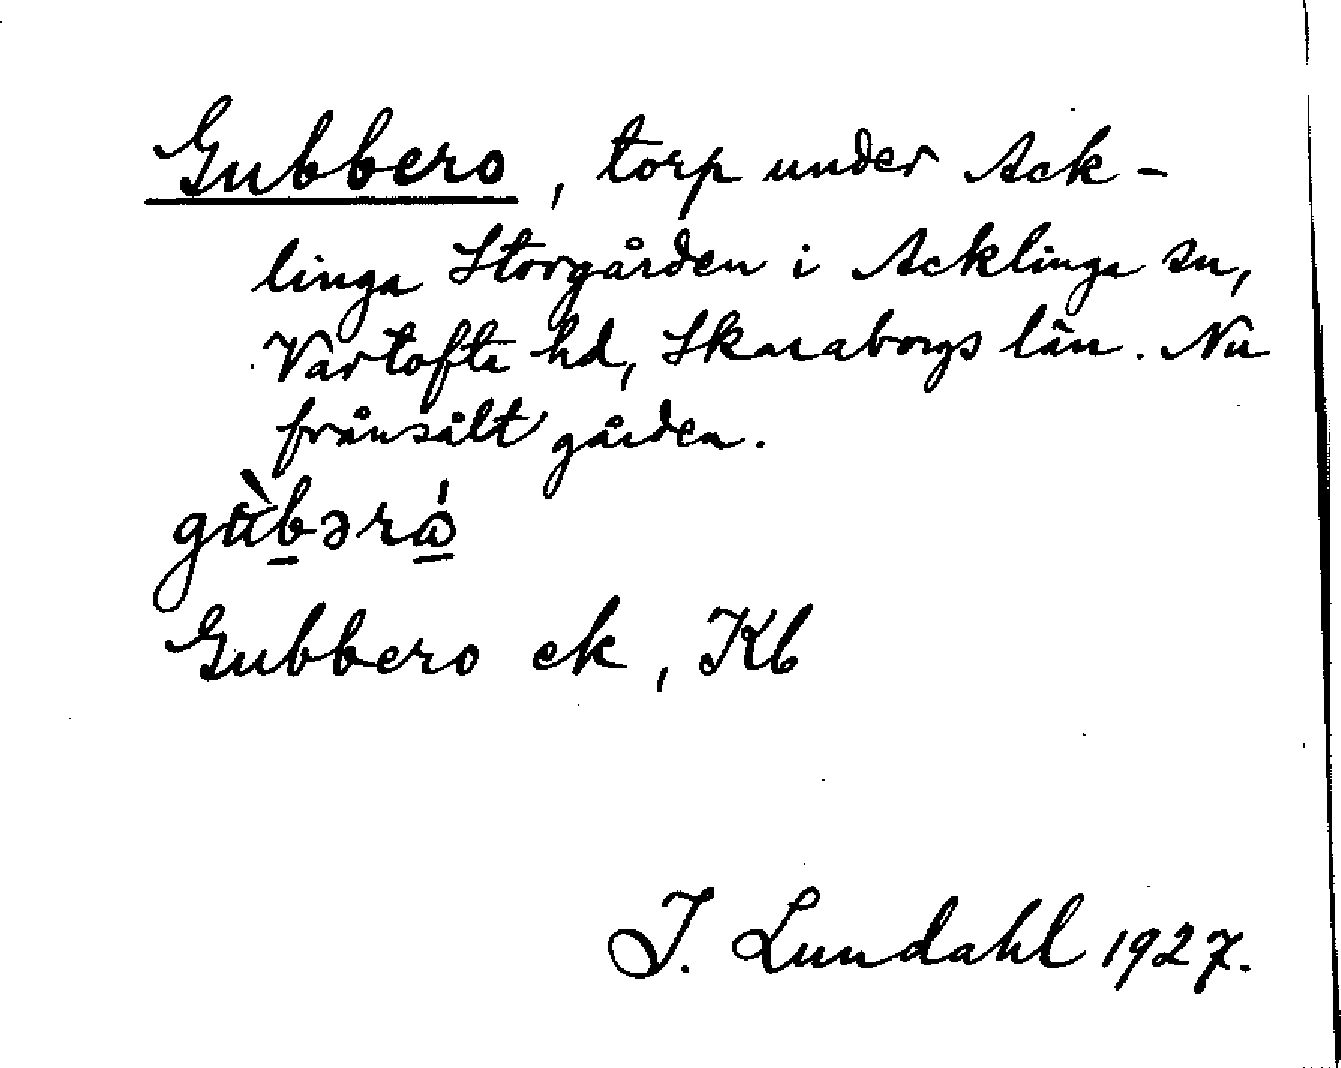 Gubbero, torp under Ack-
linga Storgården i Acklinga sn,
Vartofta hd, Skaraborgs län. Nu
frånsålt gården.
Gubbero ek, Kb
J. Lundahl 1927.